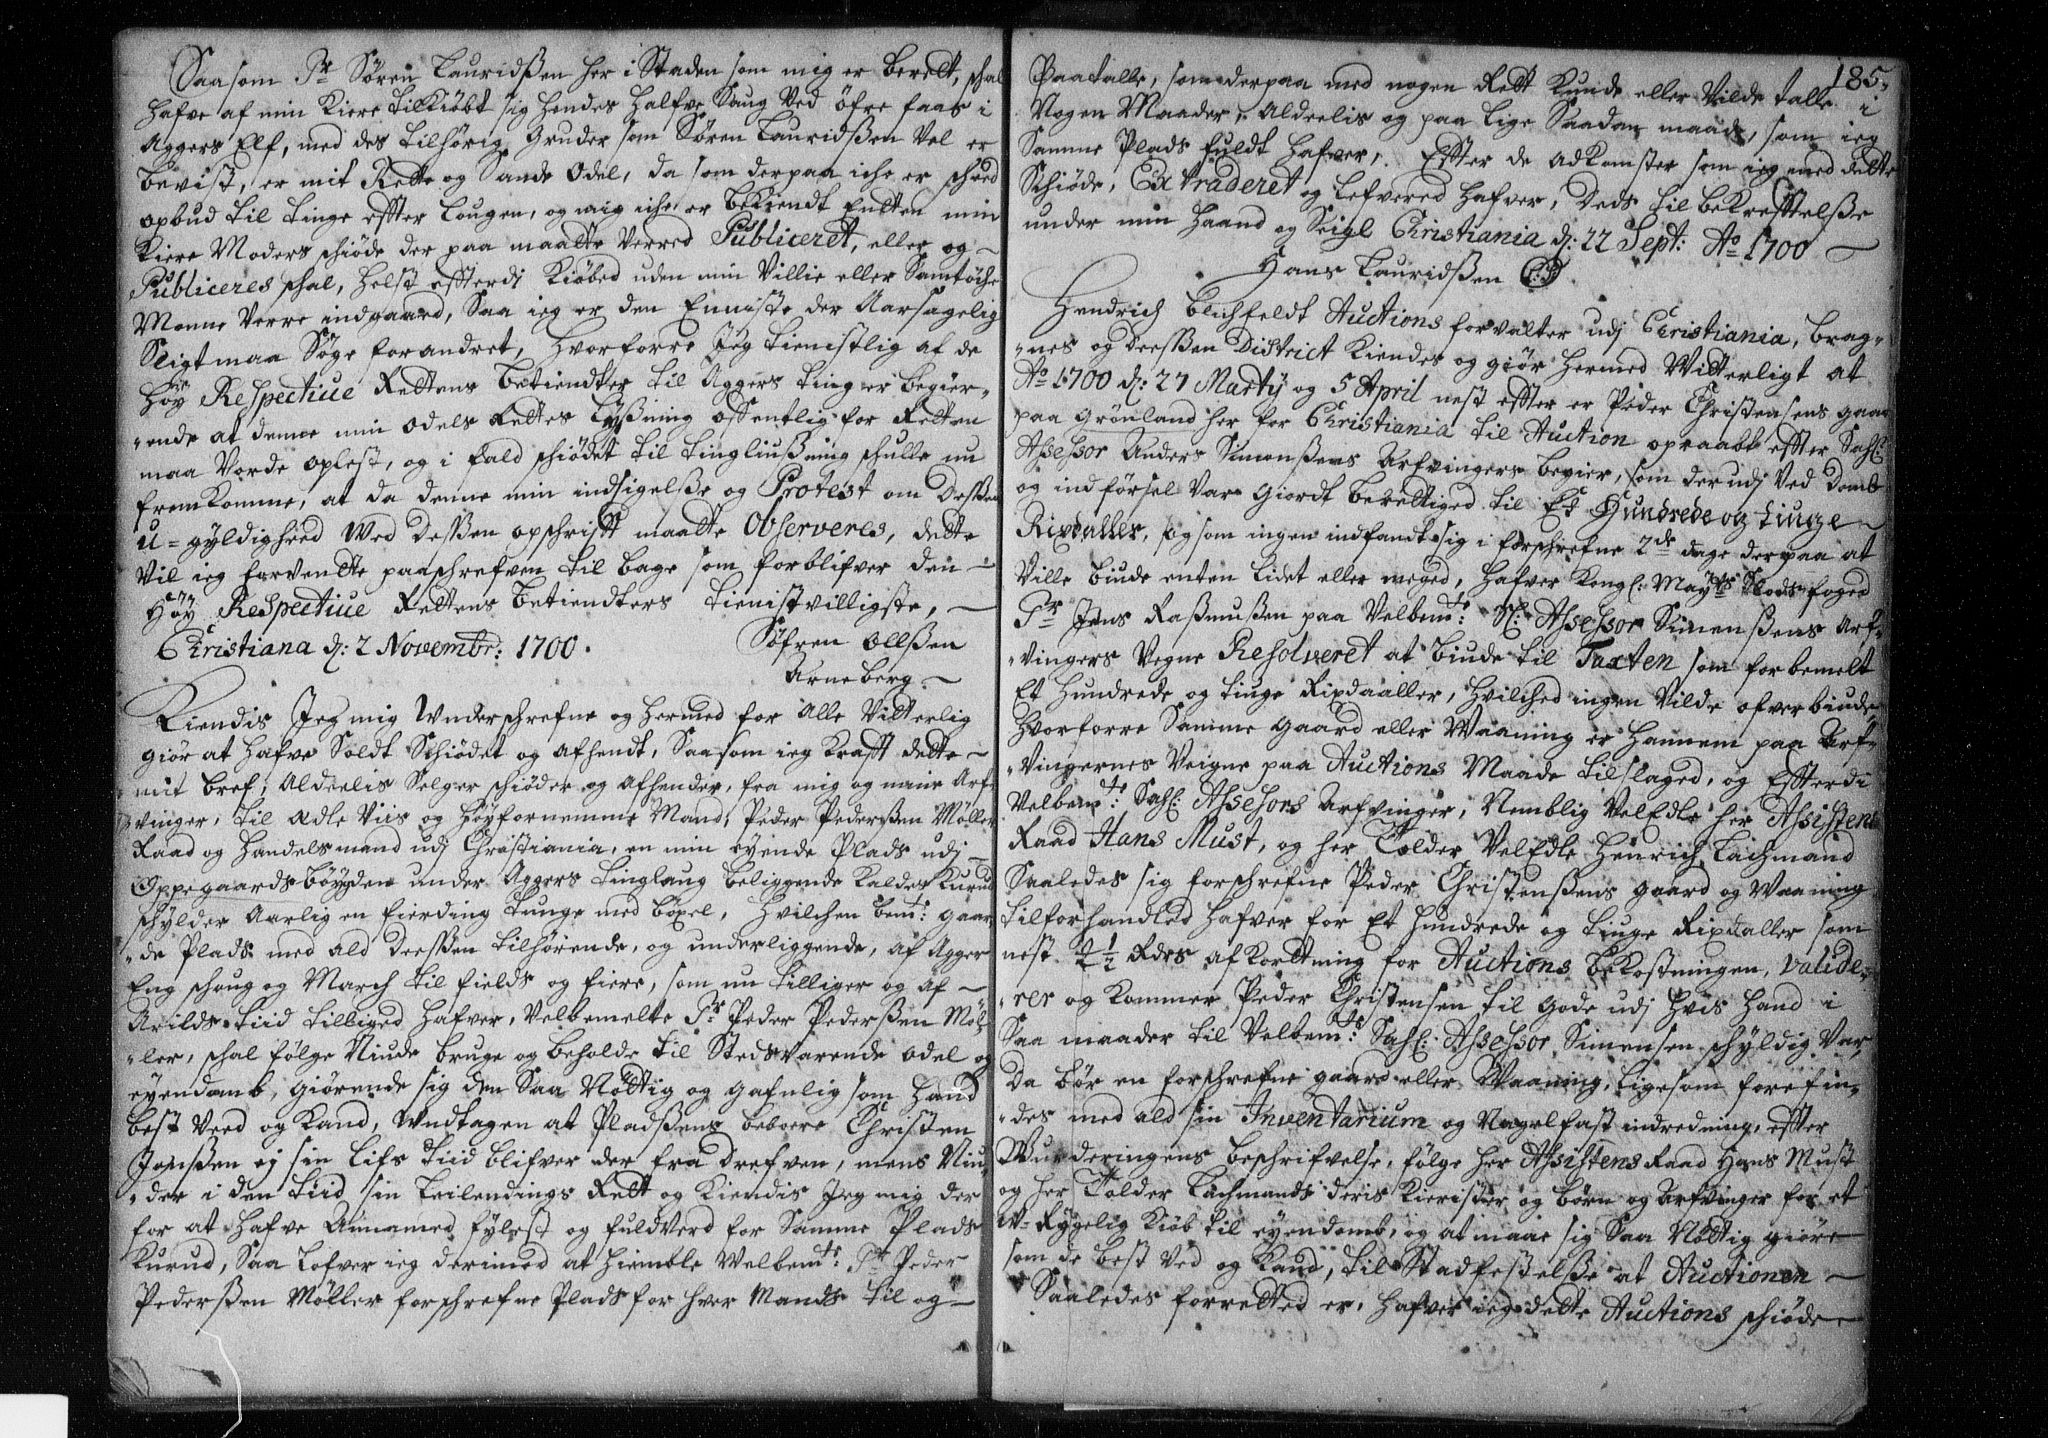 Saasom Sr Søren Lauridßen her i Staden som mig er berett, schal
hafve af min Kiere tilkiøbt sig hendes halfve Saug ved øfre faas i
Aggers Elf, med des tilhørig Grunder som Søren Lauridßen Vel er
bevist, er mit Rette og Sande Odel, da som derpaa iche er scheed
opbud til tinge effter Lougen, og mig iche er bekiendt Enten min
Kiere Moders schiøde der paa maatte Verred Publiceret, eller og
Publiceres schal, helst effterdj Kiøbed uden min Villie eller Samtøche
Monne Verre indgaaed, Saa ieg er den Enniste der Aarsagelig
Sligt maa Søge forandret, hvorforre Jeg tienistlig af de
Høy Respective Rettens betiendter til Aggers ting er begier-
ende at denne min odels Rettes Lyßning offentlig for Retten
maa Vorde oplest, og i fald schiødet til tingliußning schulle nu
fremkomme, at da denne min indsigelße og Protest om deßen
u-gyldighed Ved deßen opschrifft maatte Observeres, dette
Vil ieg forvendte paaschrefven til bage som forblifver den
Høy Respective Rettens betiendters tienistvilligste,
Christiana d: 2 Novembr: 1700. Søfren Ollßen
Arneberg
Kiendis Jeg mig Underschrefne og hermed for Alle Vitterlig
giør at hafve Soldt Schiødet og afhendt, Saasom ieg Krafft dette
mit bref, Aldeelis Selger schiøder og afhender, fra mig og mine Arf-
vinger, til ædle Viis og høyfornemme Mand, Peder Pederßen Møller
Raad og Handelsmand udj Christiania, en min eyende Plads udj
Oppegaardsbøygden under Aggers tinglaug beliggende Kaldes Kurud
schylder Aarlig en fierding tunge med bøxel, hvilchen bemte: gaar-
de Plads med ald deeßen tilhørende, og underliggende, af Agger
Eng schoug og March til fields og fiere, som nu tilliger og af
Arilds tiid tilliged hafver, Velbemelte Sr Peder Pederßen Møl-
ler, schal følge Niude bruge og beholde til Stedsvarende odel og
eyendomb, giørende sig den Saa Nøttig og gafnlig som hand
best Veed og Kand, Undtagen at Pladßens beboere Christen
Jonßen ej sin Lifs tiid blifver der fra drefven, mens Niu-
der i den tiid sin Leilendings Rett og Kiendis Jeg mig der
for at hafve Annamed fylest og fuldverd for Samme Plads
Kurud, Saa Lofver ieg derimod at hiemble Velbemte: Sr Peder
Pederßen Møller forschrefne Plads for hver Mands til og
185.
Paatalle, som derpaa med nogen Rett Kunde eller Vilde talle i
Nogen Maader, Aldeelis og paa Lige Saadan maade, som ieg
Samme Plads fuldt hafver, Effter de adkomster som ieg med dette
Schiøde, Extraderet og Lefvered hafver, Deds til bekrefftelße
under min haand og Seigl Christiania d: 22 Sept: Ao 1700
Hans Lauridßen
Hendrich Blichfeldt Auctions forvalter udj Christiania, brag-
nes og deeßen District Kiendes og giør hermed Vitterligt at
Ao 1700 d: 27 Marty og 5 April nest effter er Peder Christensens gaar
paa Grønland her for Christiania til Auction opraabt effter Sahl:
Assessor Anders Simonßens Arfvingers begier, som der udj Ved domb
og indførsel Var giordt berettiged til Et Hundrede og tiuge
Rixdaller, og som ingen indfandt sig i forschrefne 2de dage derpaa at
Ville biude enten lidet eller meged, hafver Kongl: Mayts Slodsfoged
Sr Jens Raßmußen paa Velbemte: Sl: Assessor Simenßens Arf-
vingers Vegne Resolveret at biude til Taxten som forbemelt
Et hundrede og tiuge Rixdaaller, hvilched ingen Vilde ofverbiude
hvorforre Samme gaard eller Waaning er hannem paa Arf-
Vingernes Veigne paa Auctions Maade tilslaged, og Effterdi
Velbemte: Sahl: Assessors Arfvinger, Nemblig VelEdle her Assistens
Raad Hans Must, og her Tolder VelEdle Hinrich Lachmand
Saaledes sig forschrefne Peder Christenßens gaard og Waaning
tilforhandled hafver for Et hundrede og tiuge Rixdaller som
nest Rdrs afkortning for Auctions bekostningen, valide-
rer og kommer Peder Christensen til gode udj hvis hand i
Saa maader til Velbemte: Sahl: Assessor Simensen schyldig Var,
Da bør en forschrefne gaard eller Waaning, ligesom forefin-
des med ald sin Inventarium og Nagelfast indredning, effter
Wurderingens beschrifvelse, følge her Assistens Raad Hans Must
og her Tolder Lachmands deris Kierister og børn og Arfvinger for et
W-rygelig Kiøb til eyendomb, og at maae sig Saa Nøttig giøre
som de best Ved og Kand, til Stadfestelße at Auctionen
Saaledes forretted er, hafver ieg dette Auctions schiøde